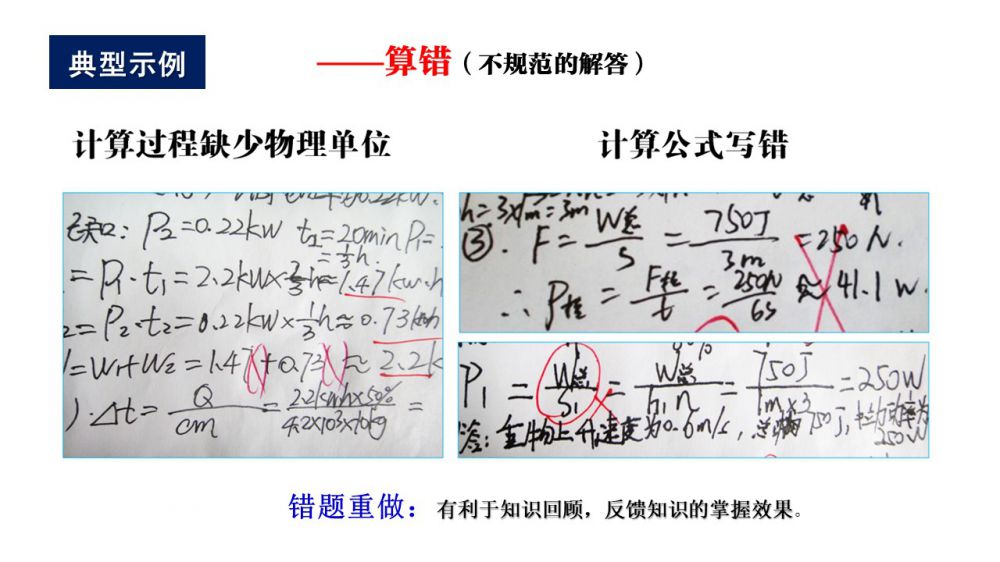 典型示例
——算错（不规范的解答）
计算过程缺少物理单位
计算公式写错
P₂=0.22kW t₂=20min P₁=
=⅓h.
=P₁·t₁=2.2kW×⅔h≈1.47kw·h
₂=P₂·t₂=0.22kW×⅓h≈0.73kwh
l=W₁+W₂=1.47+0.73≈2.2k
)·Δt=Q/cm=2.2kwh×50%/4.2×103×70kg=
h=3×1m=3m
③.F=W总/s=750J/3m=250N.
∴P拉=F拉/t=250N/6s≈41.1w.
P₁=W总/S₁=W总/h₁n=750J/1m×3=250W
答:重物上升速度为0.6m/s,总功750J,拉力功率为250W
错题重做：有利于知识回顾，反馈知识的掌握效果。